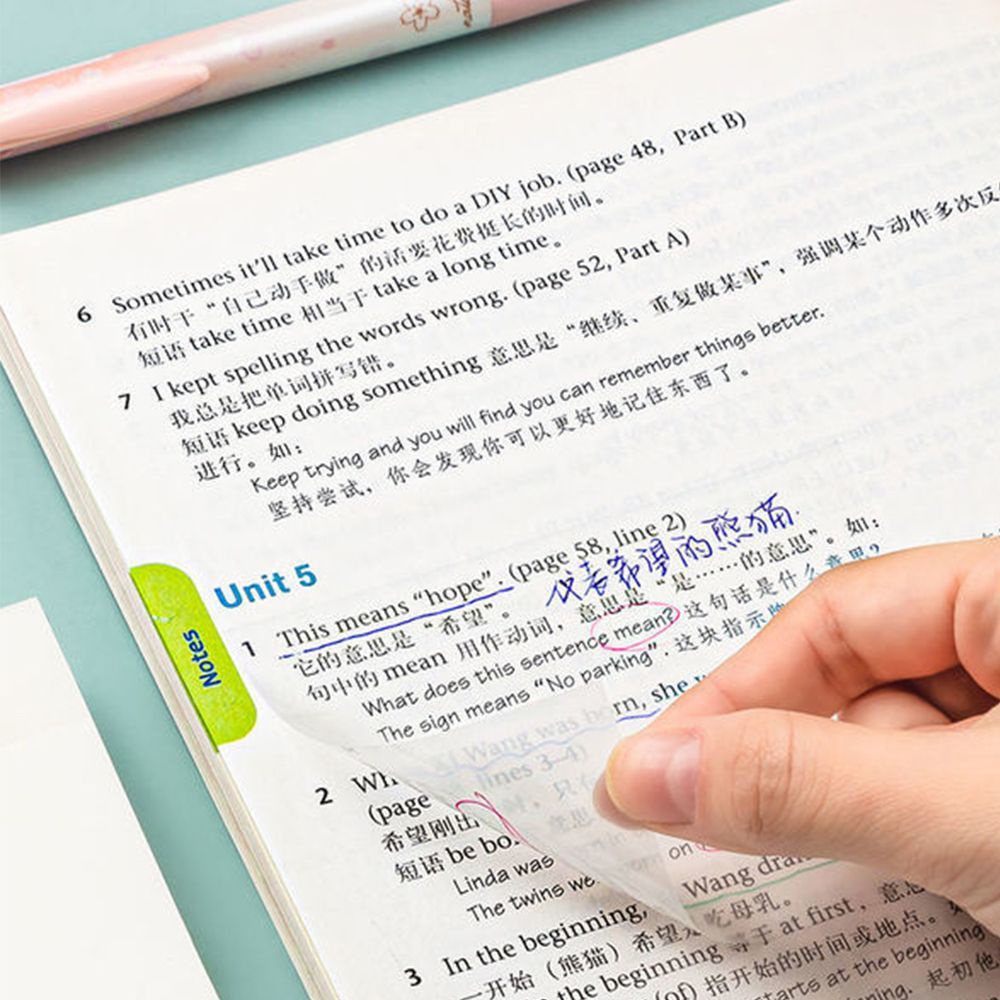 6 Sometimes it'll take time to do a DIY job. (page 48, Part B)
有时干“自己动手做”的活要花费挺长的时间。
短语 take time 相当于 take a long time。
7 I kept spelling the words wrong. (page 52, Part A)
我总是把单词拼写错。
短语 keep doing something 意思是“继续、重复做某事”，强调某个动作多次反
进行。如：
Keep trying and you will find you can remember things better.
坚持尝试，你会发现你可以更好地记住东西了。
Unit 5
Notes
1 This means “hope”. (page 58, line 2)
代表希望的熊猫.
它的意思是“希望”。
句中的 mean 用作动词，意思是“是……的意思”。如：
What does this sentence mean? 这句话是什么意思？
The sign means “No parking”. 这块指示牌
2 Wh Xi Wang was born, she w
(page lines 3–4)
希望刚出 时，只
短语 be bo 意思
Linda was born in on
The twins we born
Wang dran
吃母乳。
3 In the beginning,
一开始（熊猫）希望
the beginning 等于 at first，意思
(of) 指开始的时间或地点。
starts at the beginning
ning. 起初他